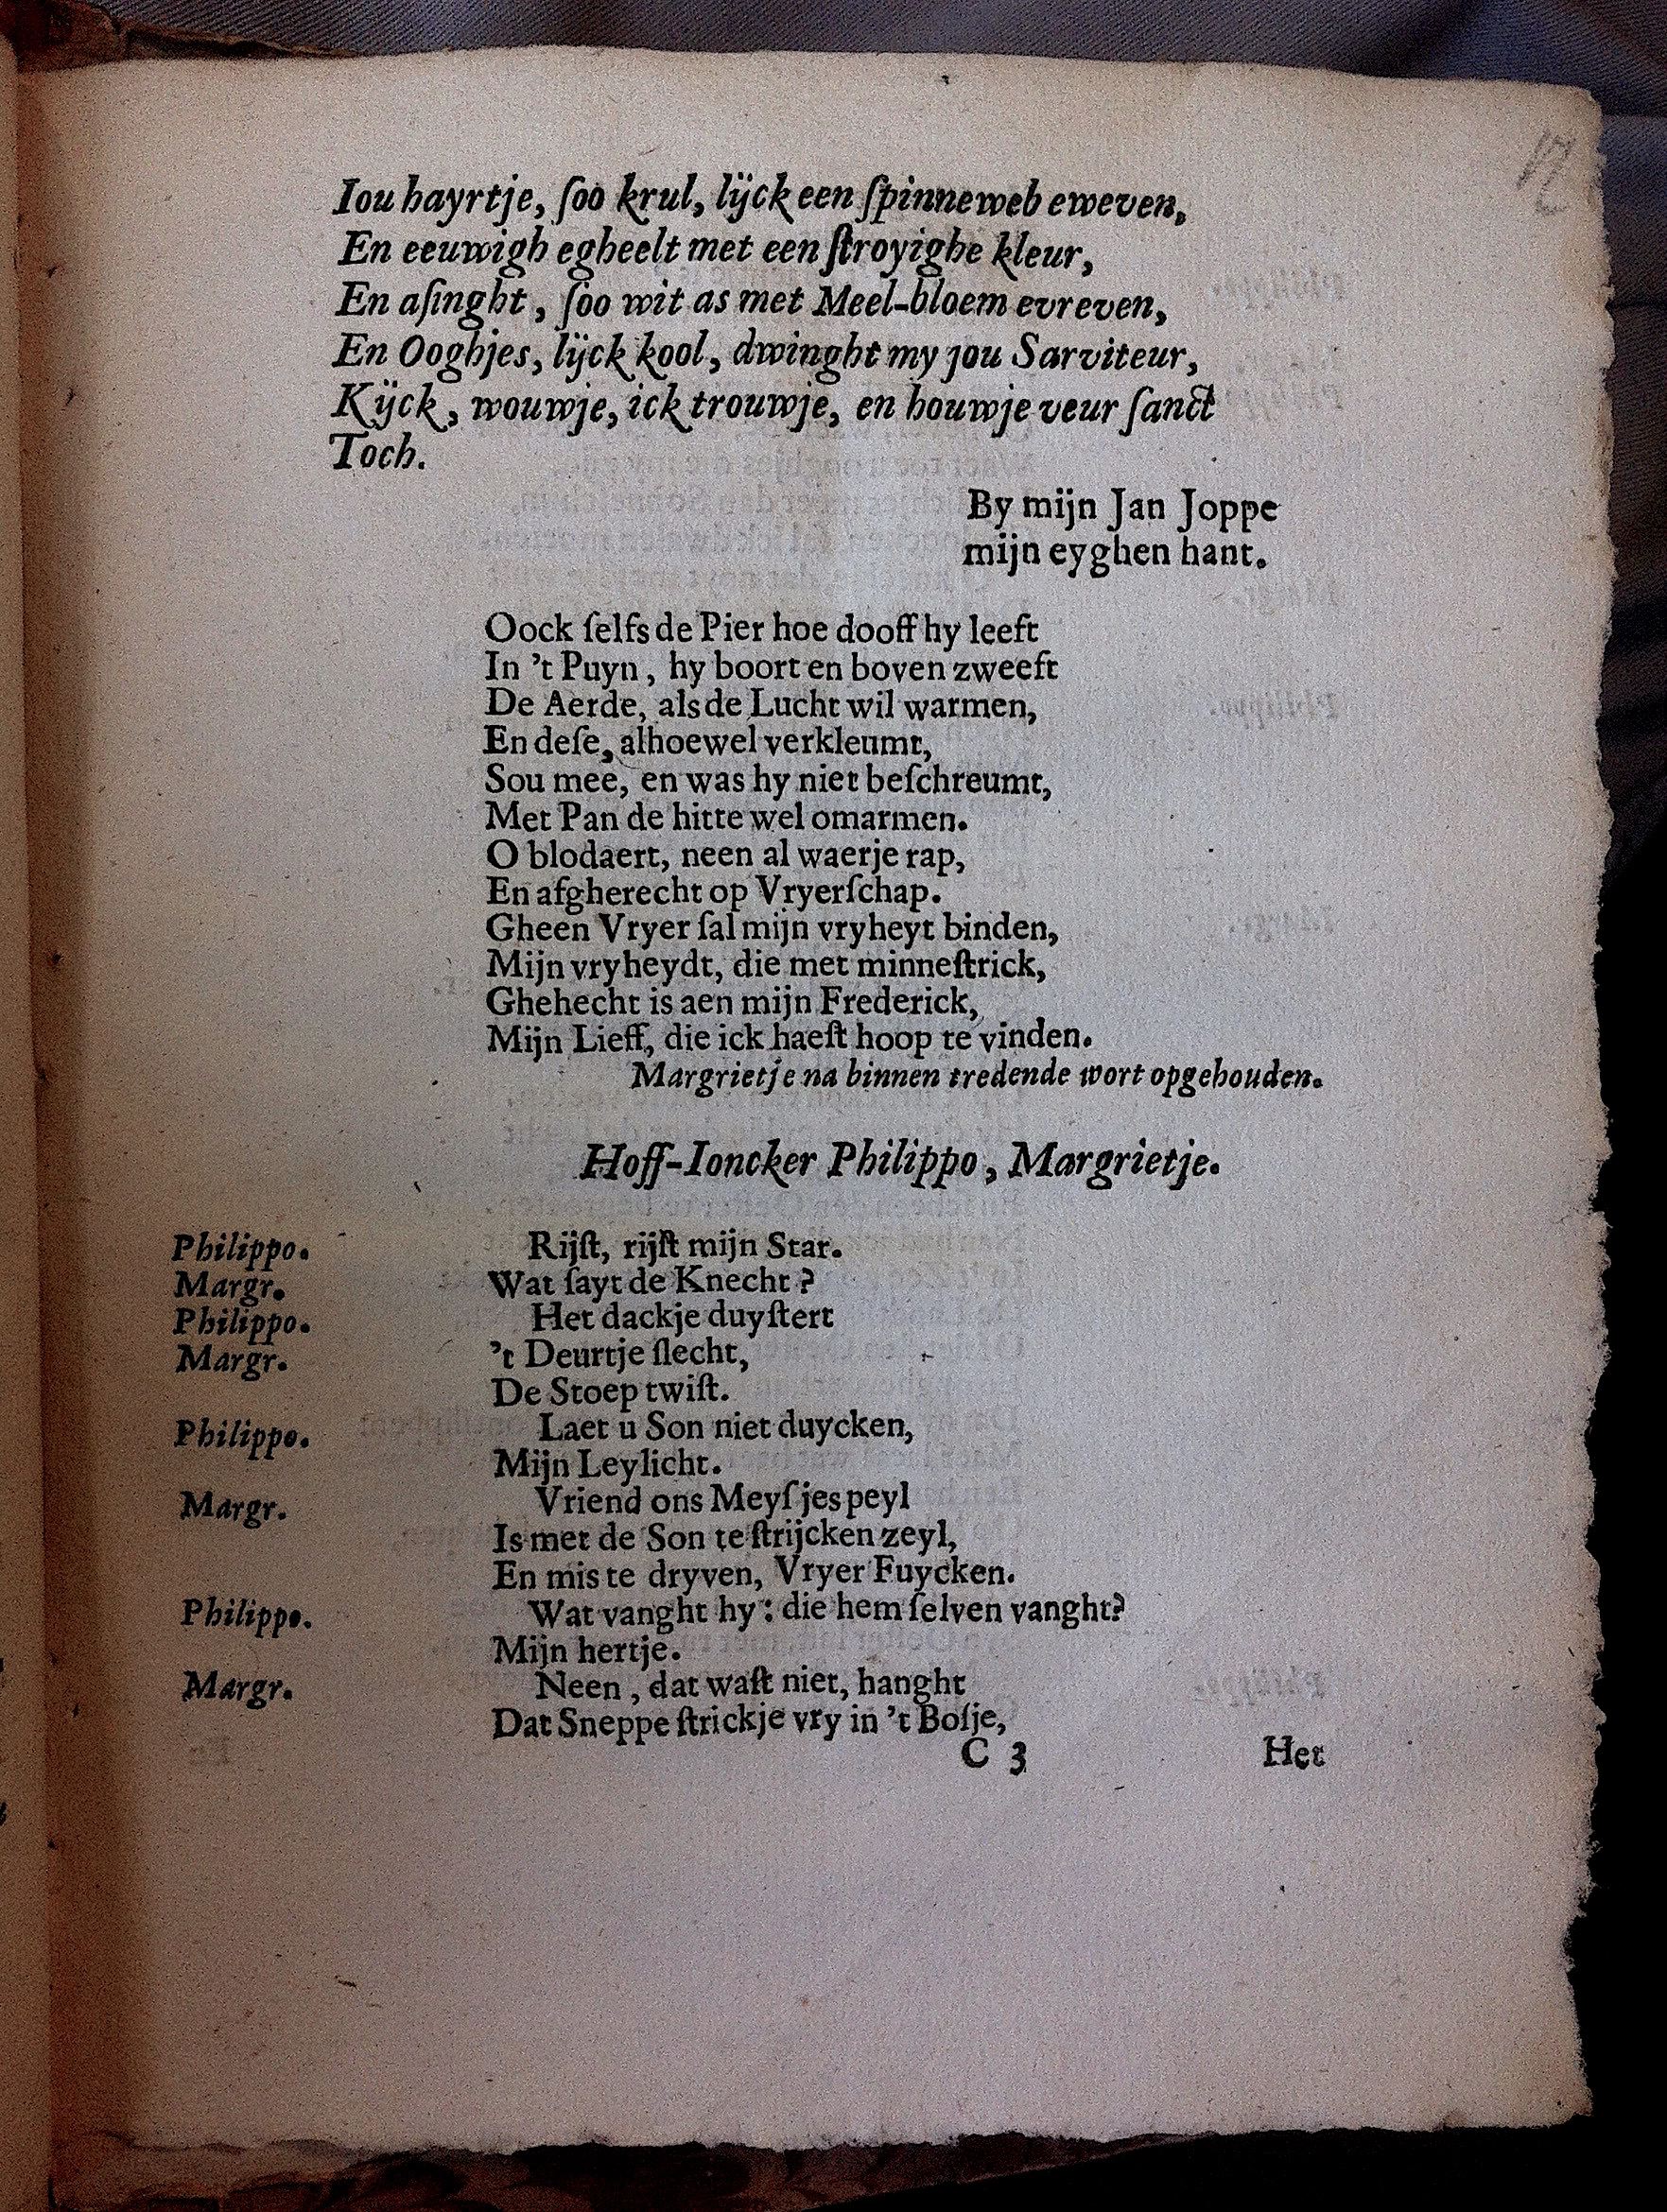 12
Iou hayrtje, ſoo krul, lijck een ſpinneweb eweven,
En eeuwigh egheelt met een ſtroyighe kleur,
En aſinght, ſoo wit as met Meel-bloem evreven,
En Ooghjes, lijck kool, dwinght my jou Sarviteur,
Kijck, wouwje, ick trouwje, en houwje veur ſanct
Toch.
By mijn Jan Joppe
mijn eyghen hant.
Oock ſelfs de Pier hoe dooff hy leeft
In 't Puyn, hy boort en boven zweeft
De Aerde, als de Lucht wil warmen,
En deſe, alhoewel verkleumt,
Sou mee, en was hy niet beſchreumt,
Met Pan de hitte wel omarmen.
O blodaert, neen al waerje rap,
En afgherecht op Vryerſchap.
Gheen Vryer ſal mijn vryheyt binden,
Mijn vryheydt, die met minneſtrick,
Ghehecht is aen mijn Frederick,
Mijn Lieff, die ick haeſt hoop te vinden.
Margrietje na binnen tredende wort opgehouden.
Hoff-Ioncker Philippo, Margrietje.
Philippo. Rijſt, rijſt mijn Star.
Margr. Wat ſayt de Knecht?
Philippo. Het dackje duyſtert
Margr. 't Deurtje ſlecht,
De Stoep twiſt.
Philippo. Laet u Son niet duycken,
Mijn Leylicht.
Margr. Vriend ons Meyſjes peyl
Is met de Son te ſtrijcken zeyl,
En mis te dryven, Vryer Fuycken.
Philippo. Wat vanght hy: die hem ſelven vanght?
Mijn hertje.
Margr. Neen, dat waſt niet, hanght
Dat Sneppe ſtrickje vry in 't Boſje,
C 3 Het